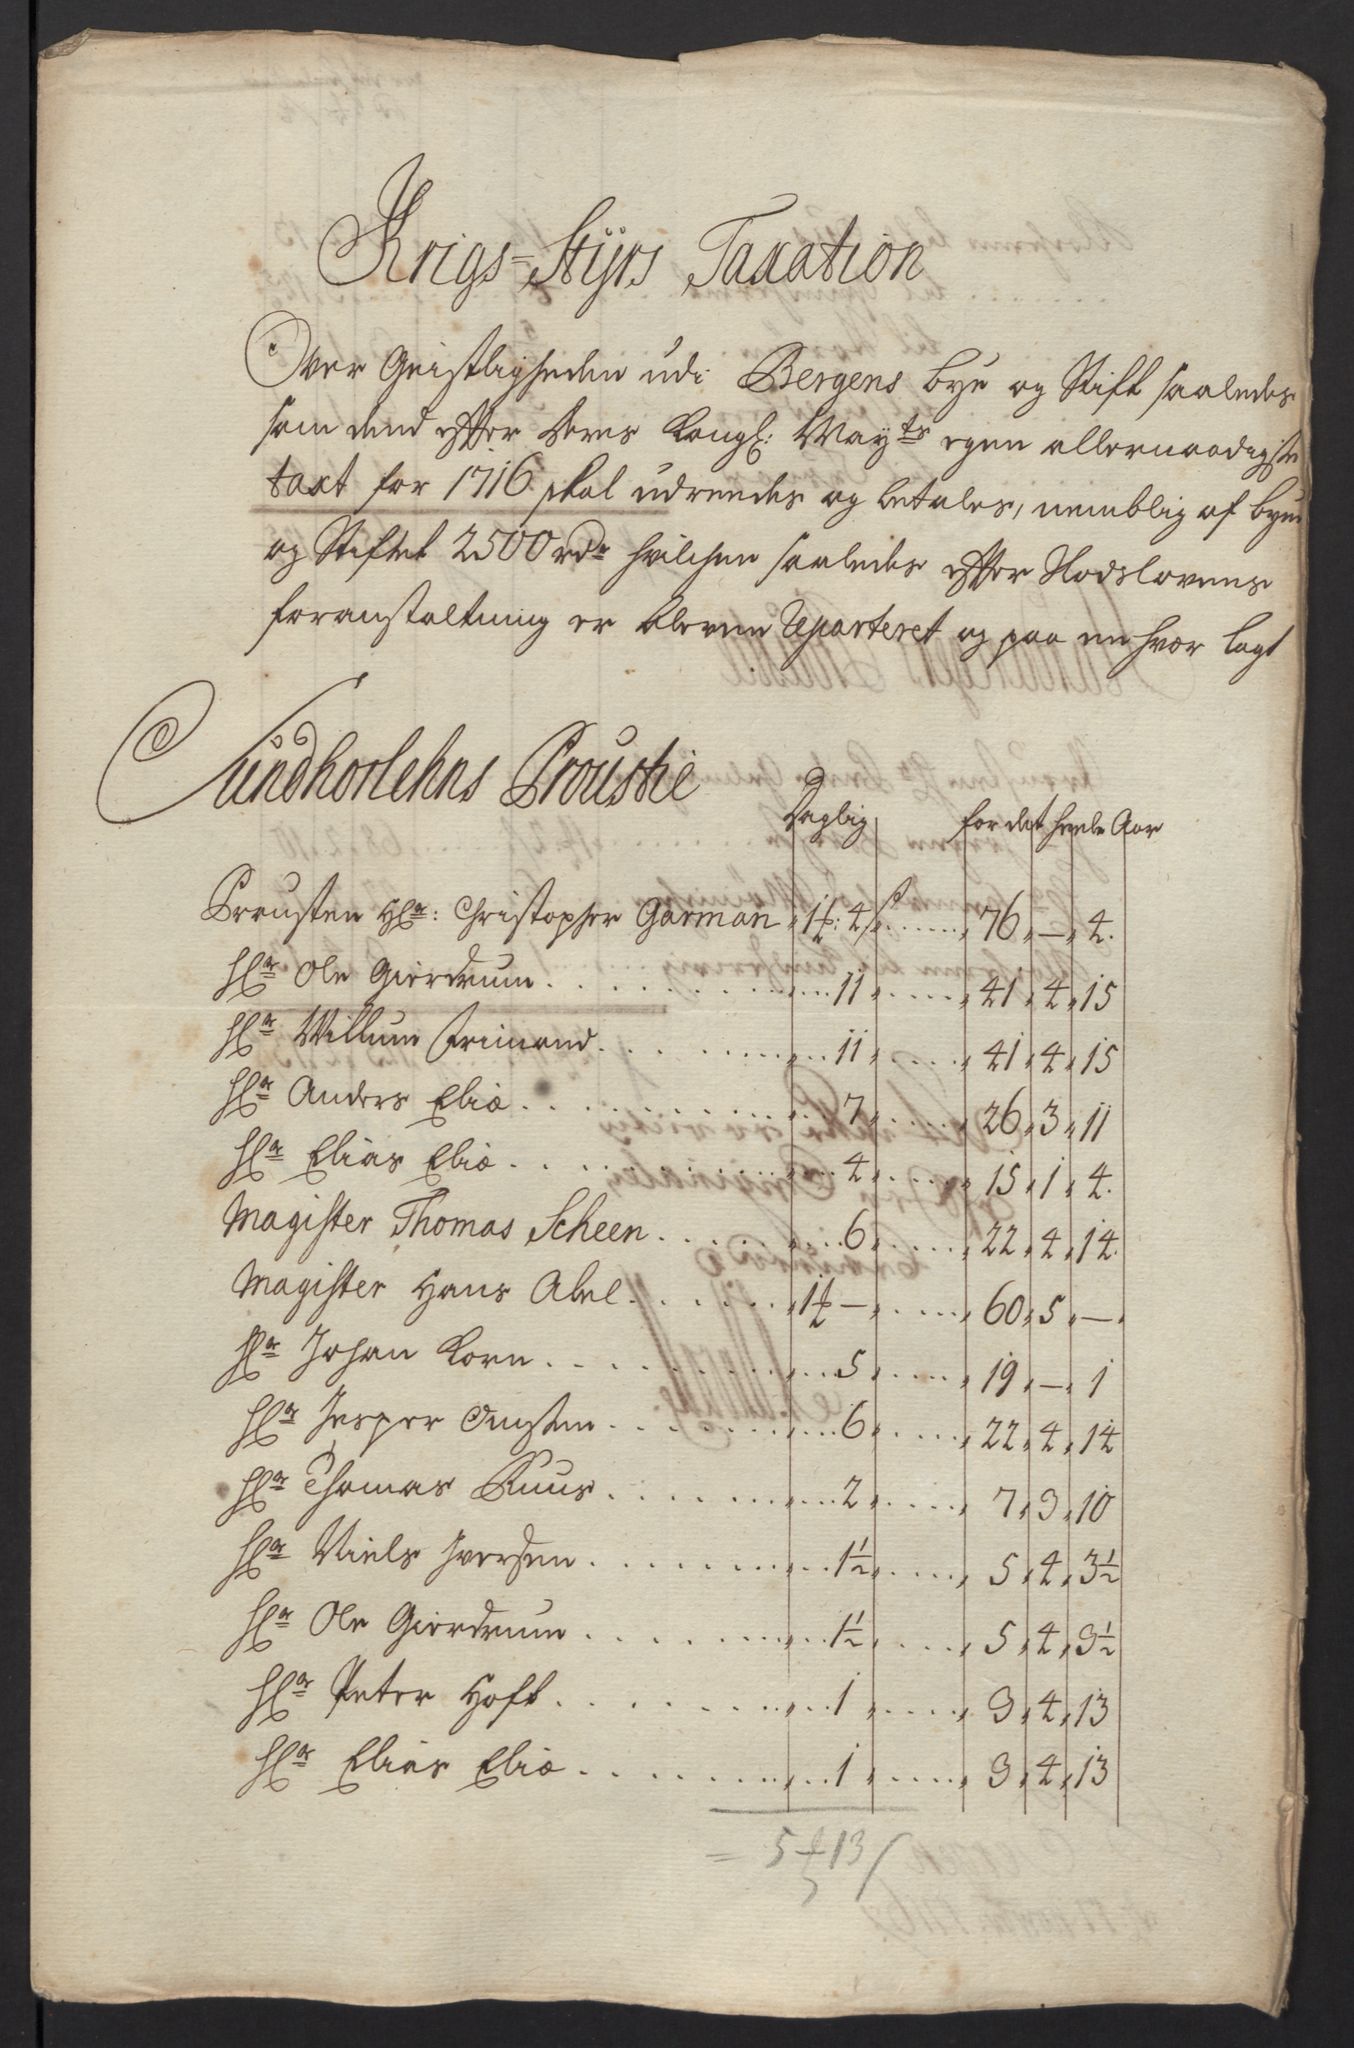 Krigs=Styrs Taxation
Over Geistligheden udi Bergens bye og Stift saaledes
som dend efter deres Kongl: Mayts egen allernaadigste
taxt for 1716 skal udreedes og betales, nemblig af byen
og Stiftet 2500 rdr hvilchen saaledes efter
foranstaltning er bleven Reparteret og paa en hver lagt
Sundhorlehns Proustie
Daglig for det heele Aar
Prousten Hr: Christopher Garman 1 : 4 s 76 — 4.
Hr Ole Gierdrum 11 41 4 15
Hr Willum Frimand 11 41 4 15
Hr Anders Eliæ 7 26 3 11
Hr Elias Eliæ 4 15 1 4.
Magister Thomas Scheen 6 22 4 14.
Magister Hans Abel 1 — 60 5 —
Hr Johan Korn 5 19 — 1
Hr Jesper 6 22 4 14
Hr Thomas Ruus 2 7 3 10
Hr Niels Iversen 1½ 5 4 3½
Hr Ole Gierdrum 1½ 5 4 3½
Hr Peter Hoft 1 3 4 13
Hr Elias Eliæ 1 3 4 13
= 5 13